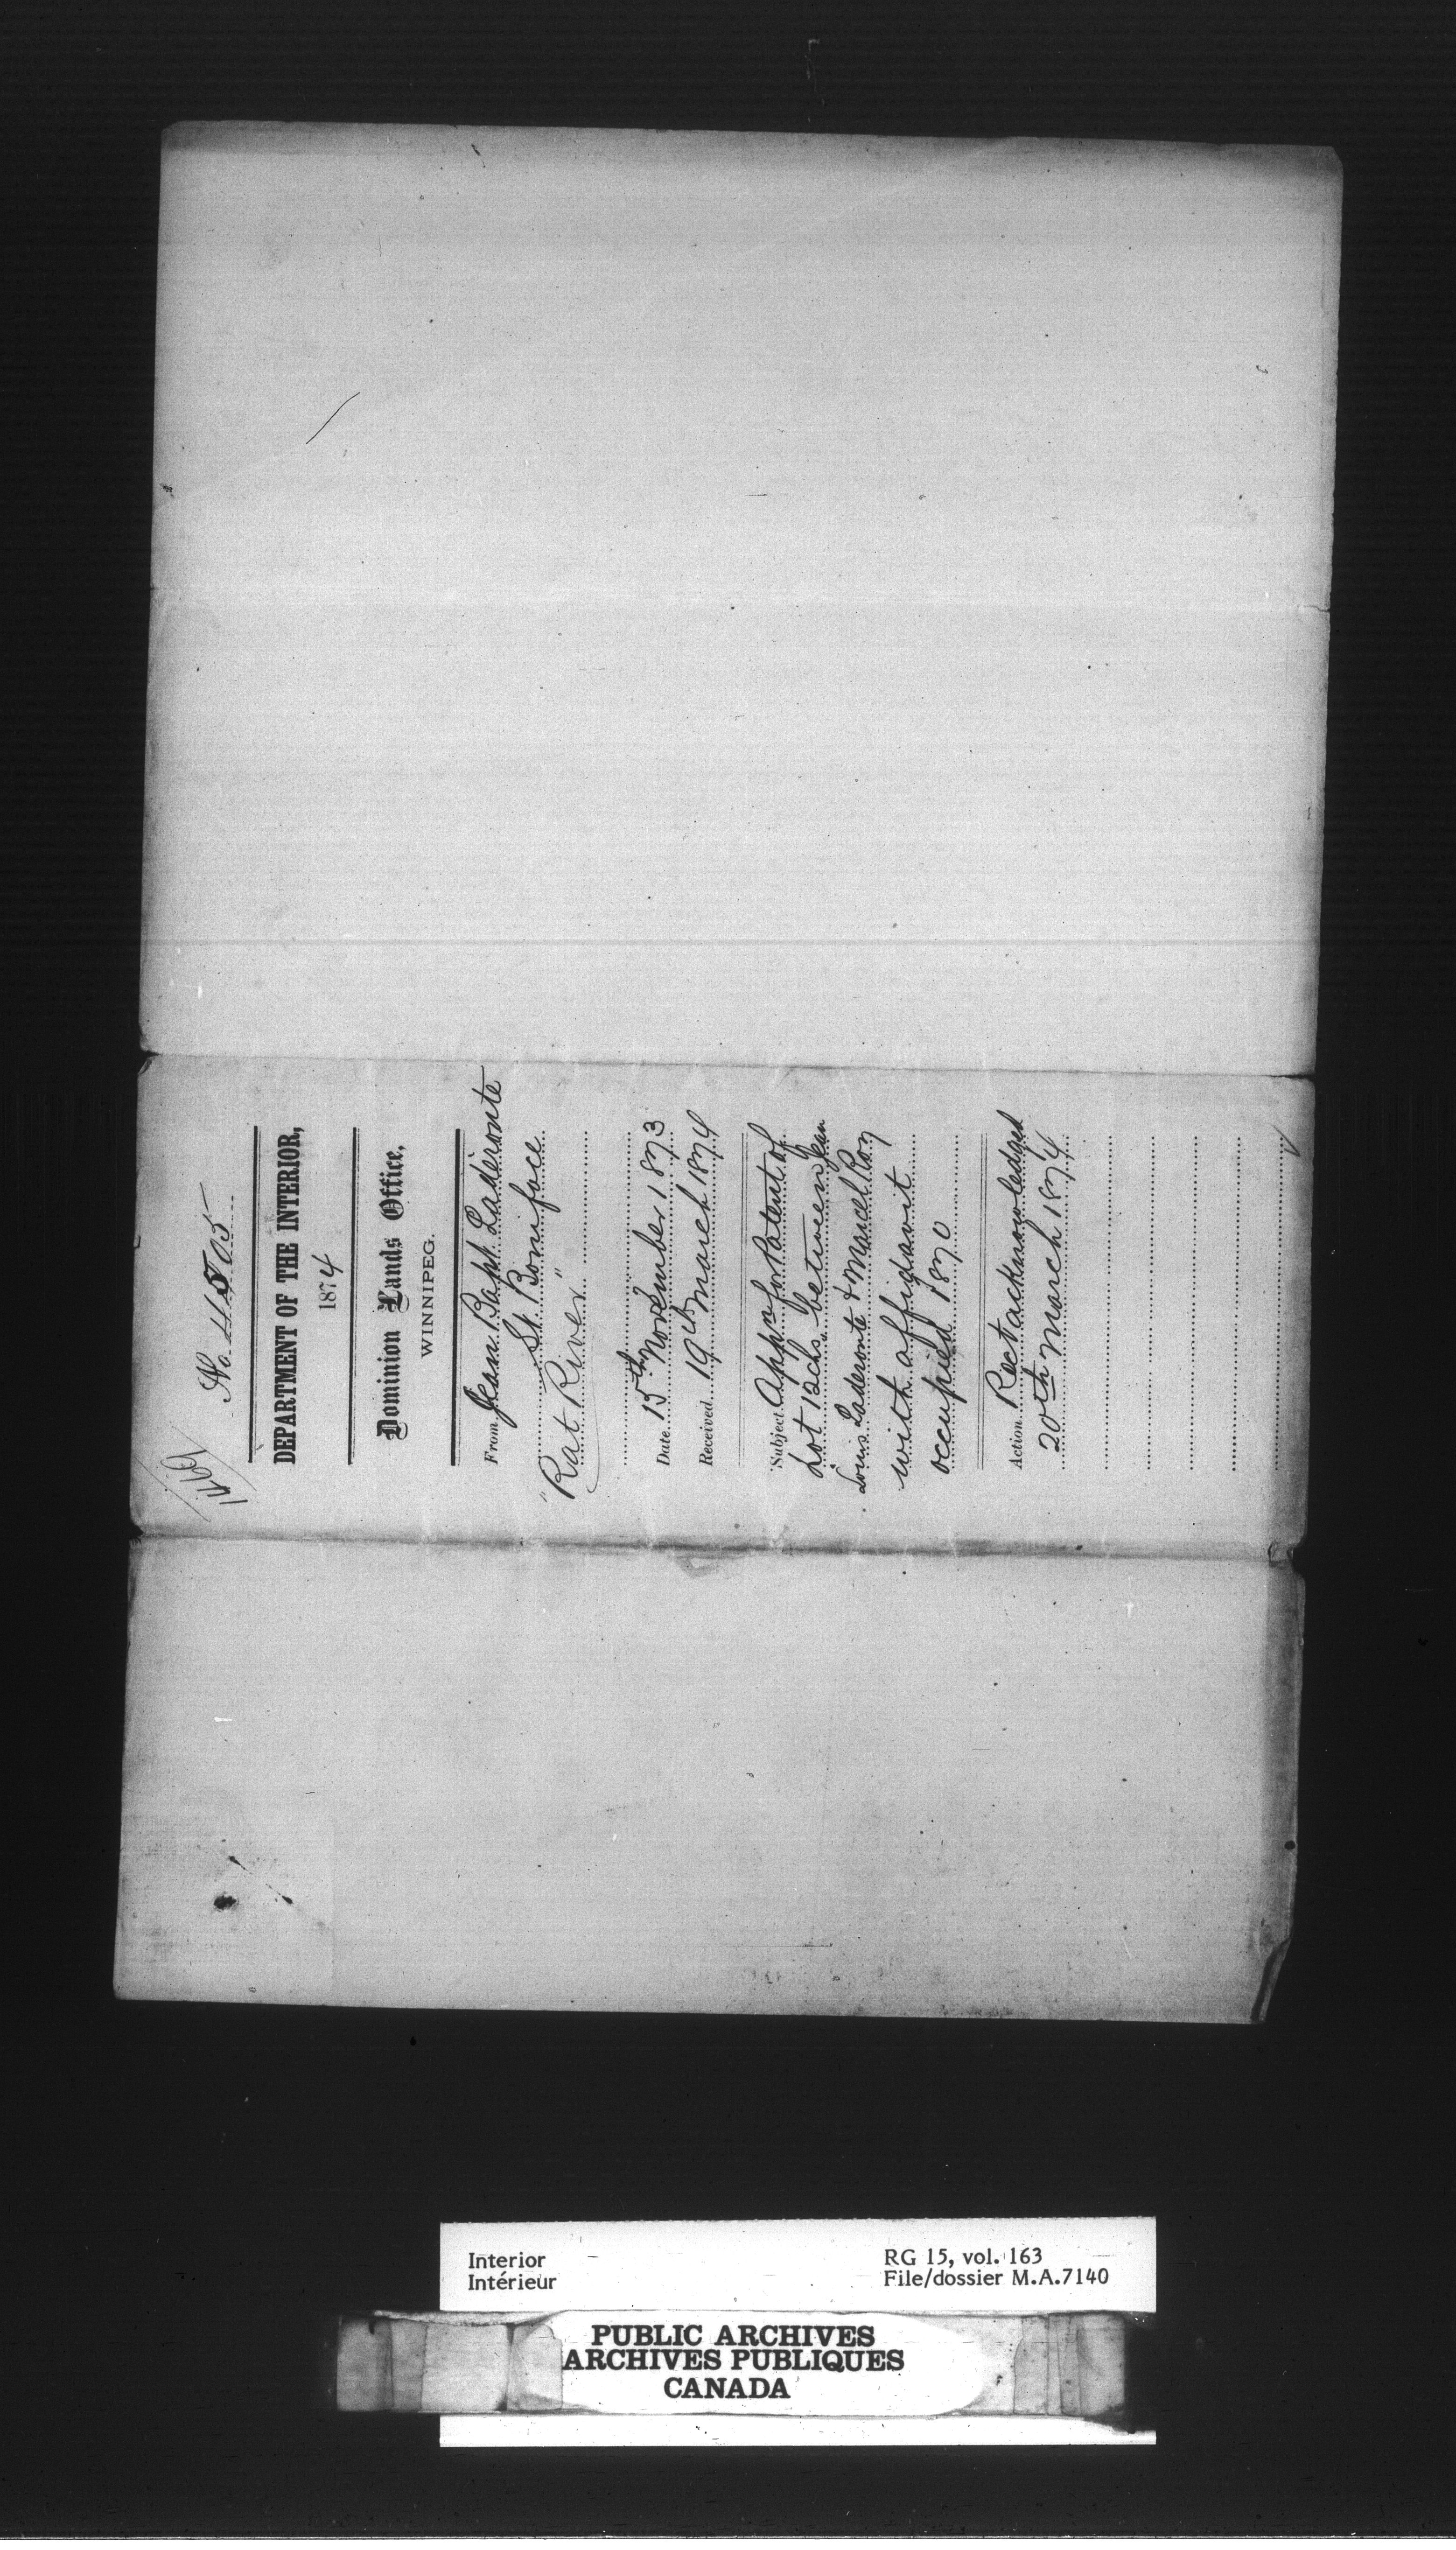 No. 4505
DEPARTMENT OF THE INTERIOR,
1874
Dominion Lands Office,
WINNIPEG.
From Jean Bapt. Laderoute
St. Boniface
"Rat River"
Date 15th November 1873
Received 19th March 1874
Subject Appn for Patent of
Lot 12 chs. between Jean
Louis Laderoute & Marcel Roy
with affidavit
occupied 1870
Action Rect acknowledged
20th March 1874
Interior
Intérieur
RG 15, vol. 163
File/dossier M.A.7140
PUBLIC ARCHIVES
ARCHIVES PUBLIQUES
CANADA